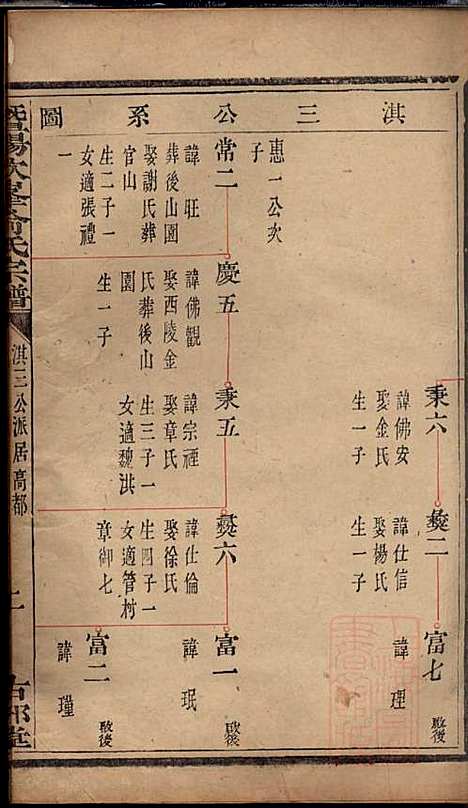 淇三公系圖
秉六
諱佛安
娶金氏
生一子
㷼二
諱仕信
娶楊氏
生一子
富七
諱理
惠一公次
子
常二
諱旺
葬後山園
娶謝氏葬
官山
生二子一
女適張禮
一
慶五
諱佛觀
娶西陵金
氏葬後山
園
生一子
秉五
諱宗禋
娶章氏
生三子一
女適魏淇
㷼六
諱仕倫
娶徐氏
生四子一
女適管村
章御七
富一
諱珉
富二
諱瑾
淇三公派居高都